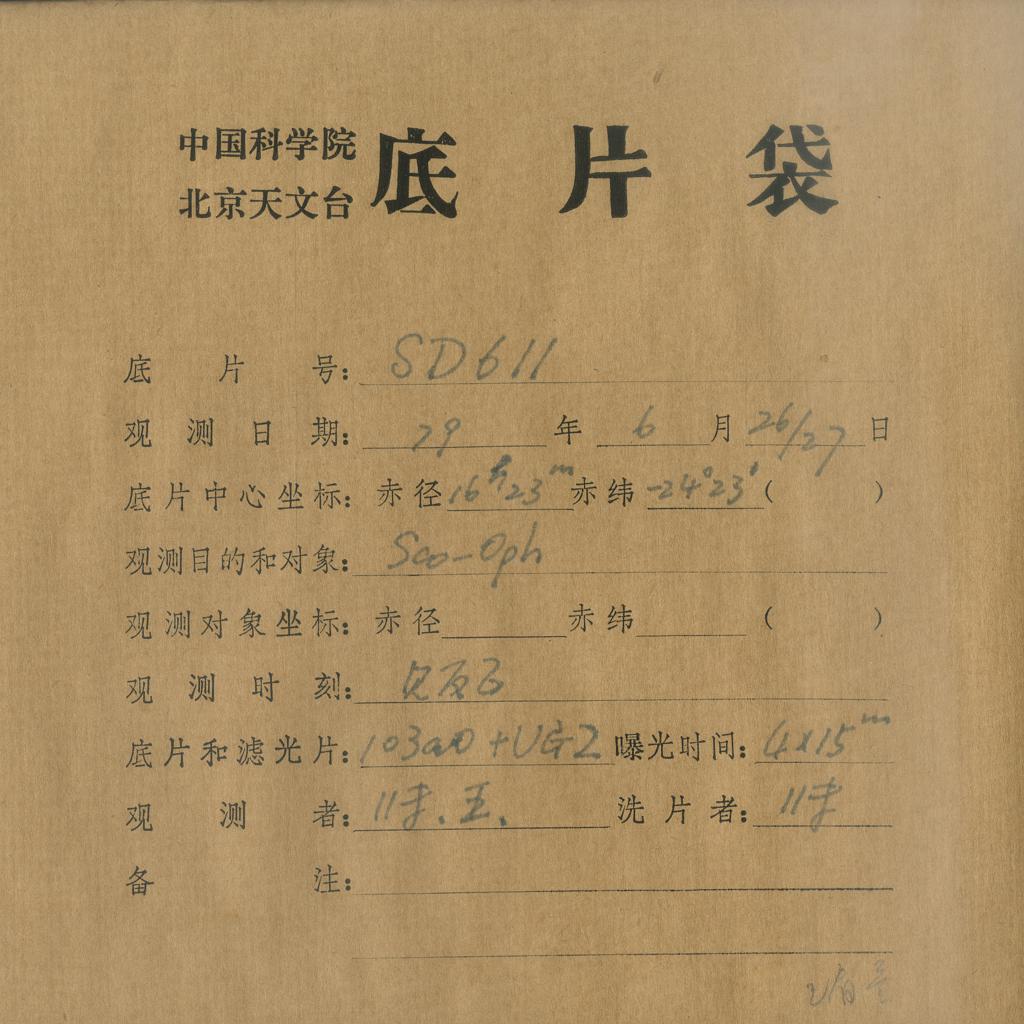 中国科学院
北京天文台
底片袋
底片号：SD611
观测日期：79年6月26/27日
底片中心坐标：赤径16h23m赤纬-24°23′（ ）
观测目的和对象：Sco-Oph
观测对象坐标：赤径 赤纬 （ ）
观测时刻：见反面
底片和滤光片：103aO+UG2 曝光时间：4x15m
观测者： 洗片者：
备注：